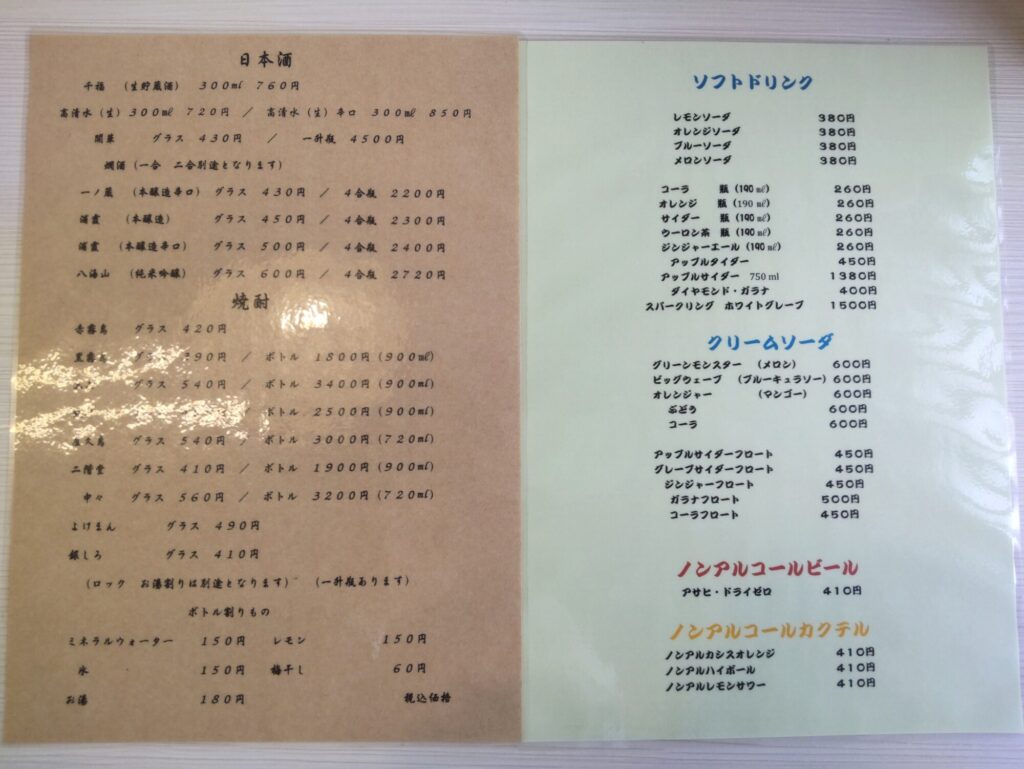 日本酒
千福 (生貯蔵酒) 300㎖ 760円
高清水(生)300㎖ 720円 / 高清水(生)辛口 300㎖ 850円
開華 グラス 430円 / 一升瓶 4500円
燗酒(一合 二合別途となります)
一ノ蔵 (本醸造辛口) グラス 430円 / 4合瓶 2200円
浦霞 (本醸造) グラス 450円 / 4合瓶 2300円
浦霞 (本醸造辛口) グラス 500円 / 4合瓶 2400円
八海山 (純米吟醸) グラス 600円 / 4合瓶 2720円
焼酎
赤霧島 グラス 420円
黒霧島 グラス 390円 / ボトル 1800円(900㎖)
グラス 540円 / ボトル 3400円(900㎖)
ボトル 2500円(900㎖)
グラス 540円 / ボトル 3000円(720㎖)
二階堂 グラス 410円 / ボトル 1900円(900㎖)
中々 グラス 560円 / ボトル 3200円(720㎖)
よけまん グラス 490円
銀しろ グラス 410円
(ロック お湯割りは別途となります) (一升瓶あります)
ボトル割りもの
ミネラルウォーター 150円 レモン 150円
氷 150円 梅干し 60円
お湯 180円 税込価格
ソフトドリンク
レモンソーダ 380円
オレンジソーダ 380円
ブルーソーダ 380円
メロンソーダ 380円
コーラ 瓶(190㎖) 260円
オレンジ 瓶(190㎖) 260円
サイダー 瓶(190㎖) 260円
ウーロン茶 瓶(190㎖) 260円
ジンジャーエール(190㎖) 260円
アップルタイダー 450円
アップルサイダー 750ml 1380円
ダイヤモンド・ガラナ 400円
スパークリング ホワイトグレープ 1500円
クリームソーダ
グリーンモンスター (メロン) 600円
ビッグウェーブ (ブルーキュラソー) 600円
オレンジャー (マンゴー) 600円
ぶどう 600円
コーラ 600円
アップルサイダーフロート 450円
グレープサイダーフロート 450円
ジンジャーフロート 450円
ガラナフロート 500円
コーラフロート 450円
ノンアルコールビール
アサヒ・ドライゼロ 410円
ノンアルコールカクテル
ノンアルカシスオレンジ 410円
ノンアルハイボール 410円
ノンアルレモンサワー 410円